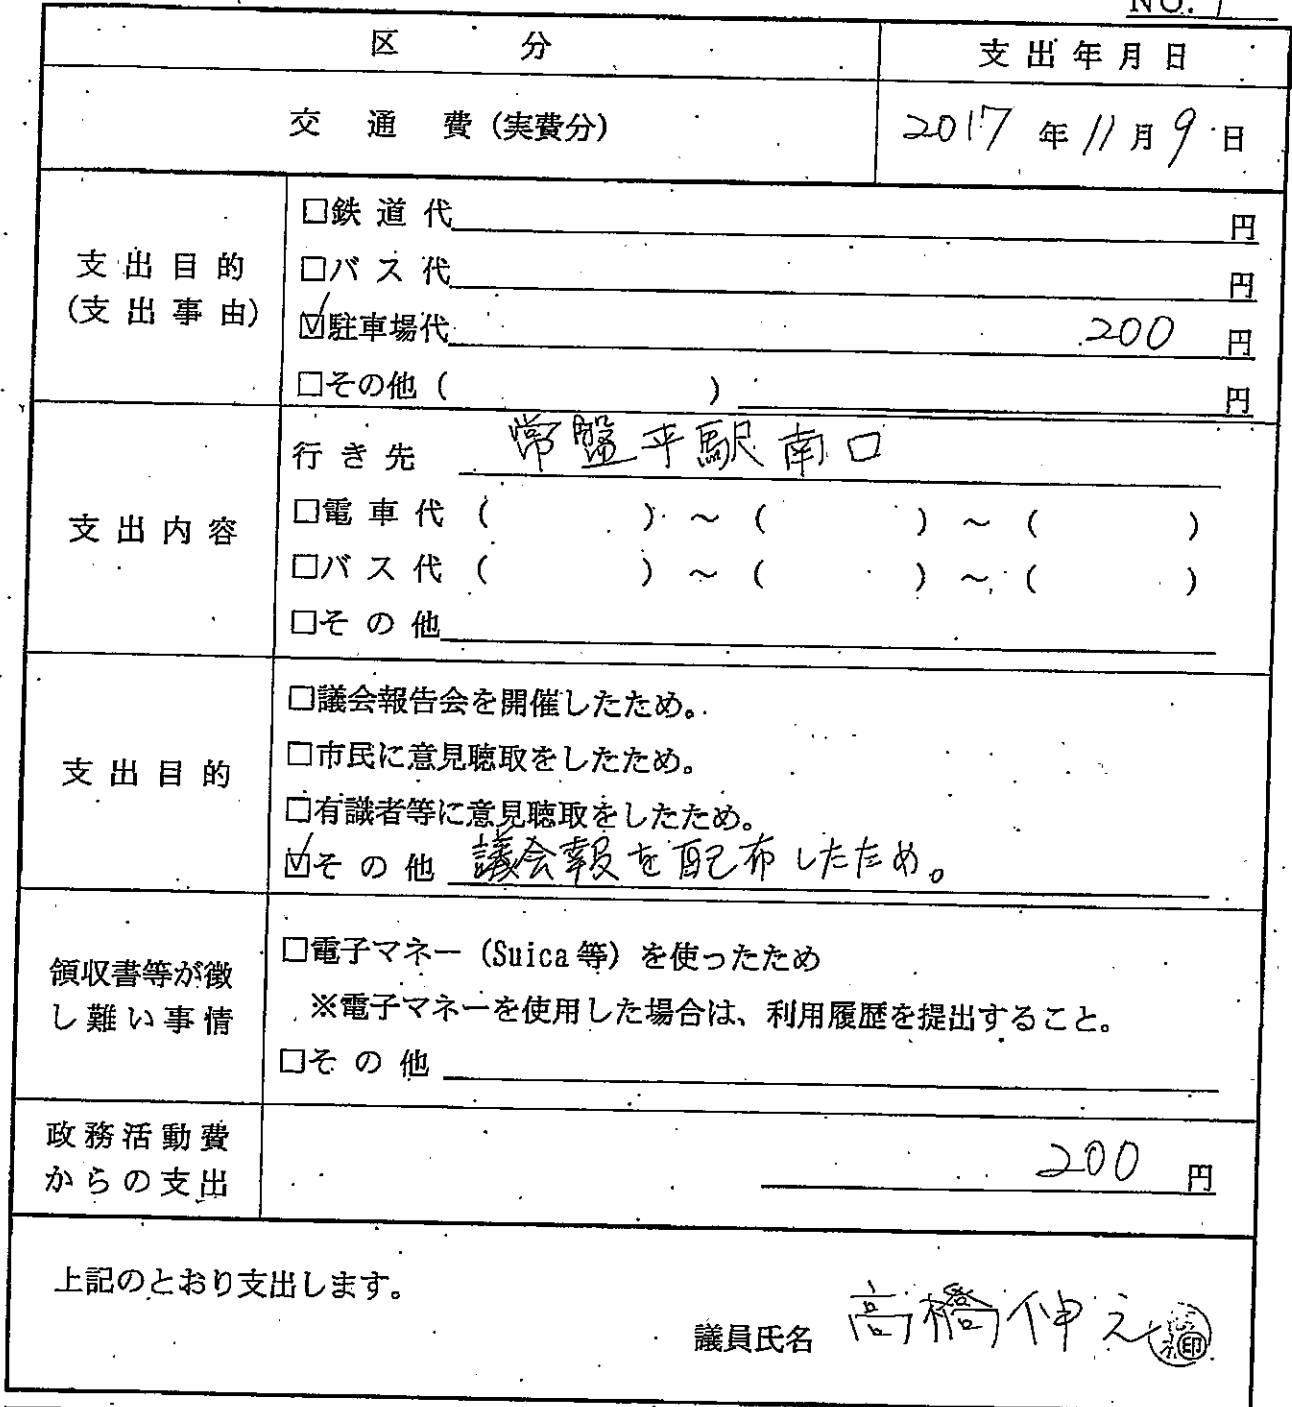 NO. 1
区 分 支出年月日
交 通 費 (実費分) 2017 年 11 月 9 日
支出目的
(支出事由)
□鉄道代 円
□バス代 円
☑駐車場代 200 円
□その他 ( ) 円
支出内容
行き先 常盤平駅南口
□電車代 ( ) ～ ( ) ～ ( )
□バス代 ( ) ～ ( ) ～ ( )
□その他
支出目的
□議会報告会を開催したため。
□市民に意見聴取をしたため。
□有識者等に意見聴取をしたため。
☑その他 議会報を配布したため。
領収書等が徴
し難い事情
□電子マネー (Suica等) を使ったため
※電子マネーを使用した場合は、利用履歴を提出すること。
□その他
政務活動費
からの支出
200 円
上記のとおり支出します。
議員氏名 高橋伸之 印